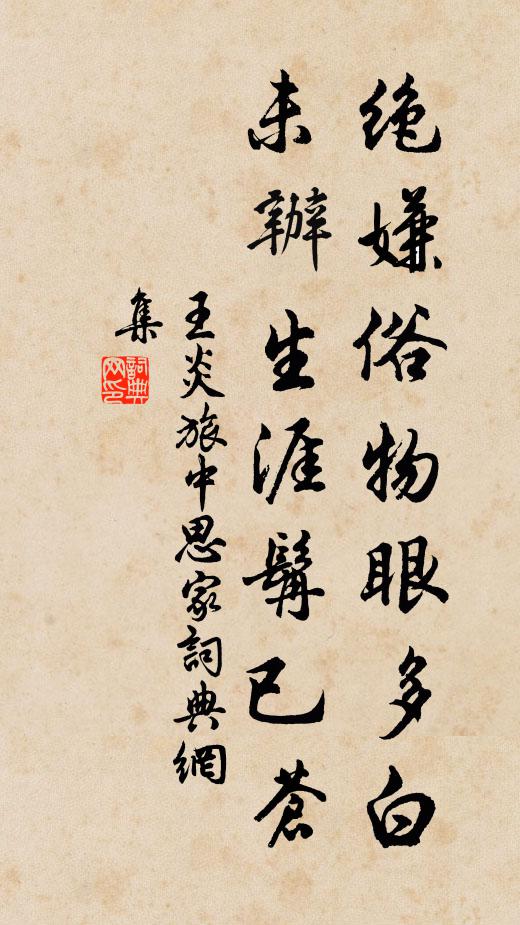 绝嫌俗物眼多白
未辦生涯鬢已蒼
王炎旅中思家詞典網
集
詞典
网印